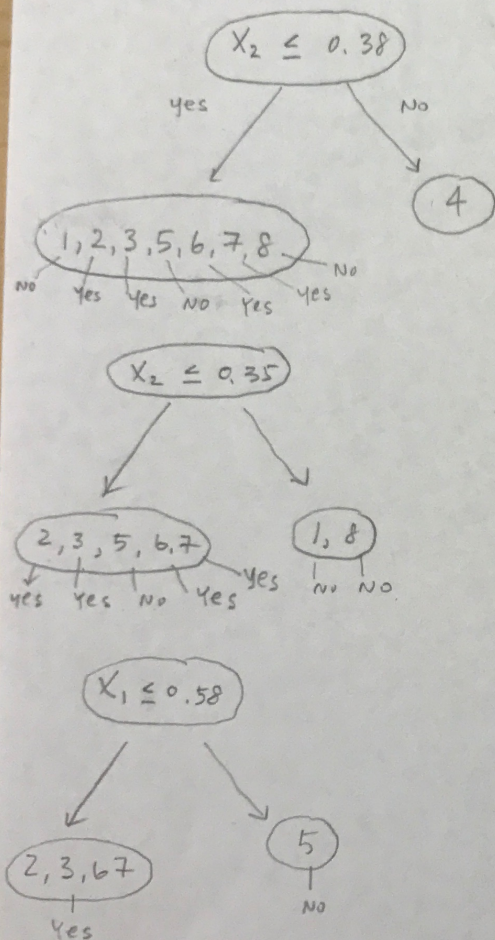 X₂ ≤ 0.38
yes No
4
1, 2, 3, 5, 6, 7, 8
No Yes Yes No Yes Yes No
X₂ ≤ 0.35
2, 3, 5, 6, 7
1, 8
yes Yes No Yes Yes
No No
X₁ ≤ 0.58
2, 3, 6 7
5
Yes
No